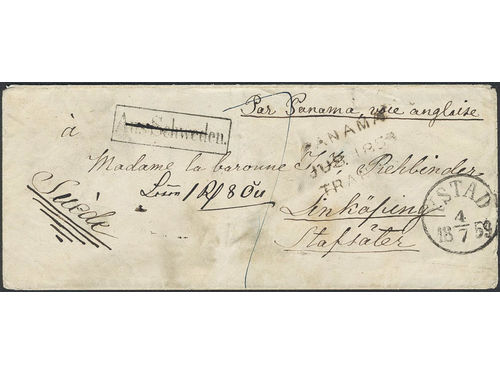 Par Panama, voie anglaise
Aus Schweden.
PANAMA
TRA
à
Madame la baronne Rehbinder
Lösen 1 Rd 8 Öre
Linköping
Stafsäter
Suède
YSTAD
4
18 7 59